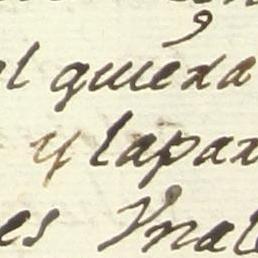 el quiexa
y lapax
es Ynal